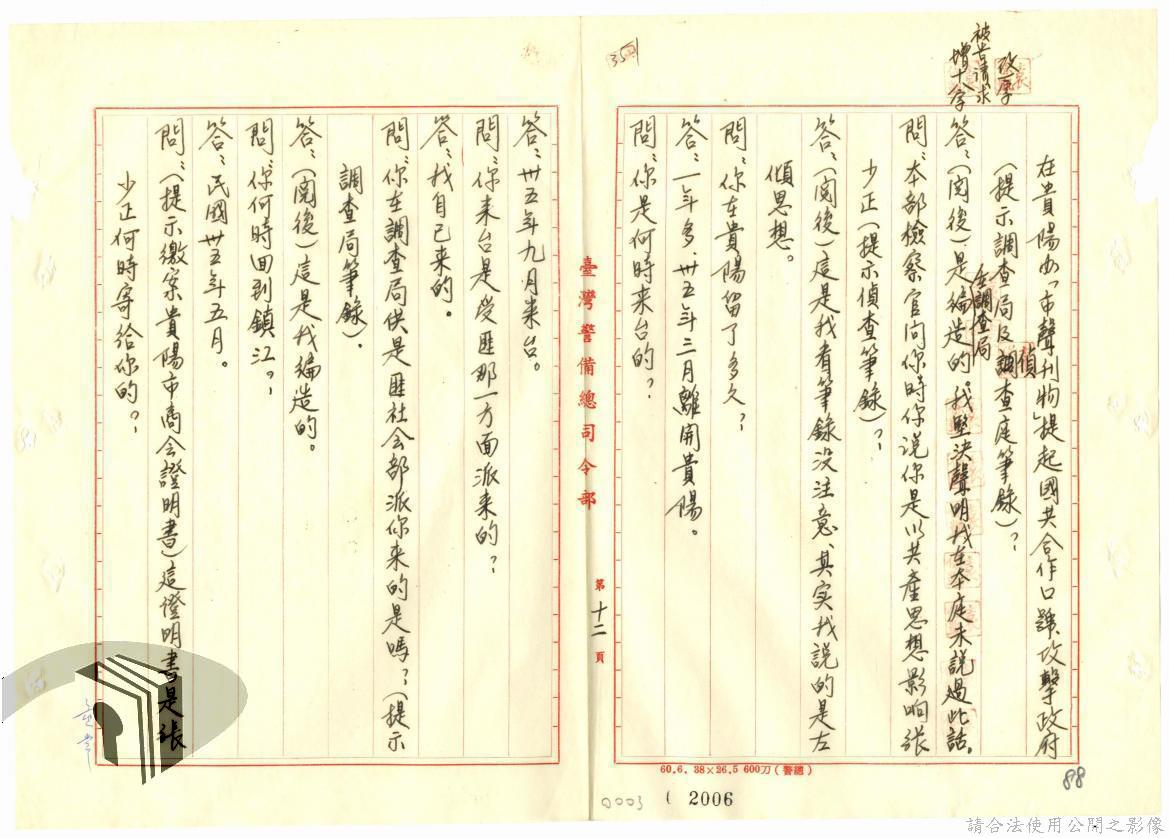 改一字
被告請求
增十字
在貴陽西「市聲刊物」提起國共合作口號攻擊政府
(提示調查局及調查庭筆錄)?
偵
答:(閱後)是編造的。我堅決聲明我在本庭未說過此話。
在調查局
問:本部檢察官问你時你說你是以共產思想影响張
少正(提示偵查筆錄)?
答:(閱後)這是我看筆錄没注意、其实我説的是左
傾思想。
問:你在貴陽留了多久?
答:一年多、卅五年三月離開貴陽。
問:你是何時来台的?
臺灣警備總司令部
第十二頁
答:卅五年九月来台。
問:你来台是受匪那一方面派来的?
答:我自己来的。
問:你在調查局供是匪社会部派你来的是嗎?(提示
調查局筆錄)。
答:(閱後)這是我編造的。
問:你何時回到鎮江?
答:民國卅五年五月。
問:(提示繳案貴陽市商会證明書)這證明書是張
少正何時寄給你的?
60.6. 38×26.5 600刀(警總)
0003
2006
88
請合法使用公開之影像